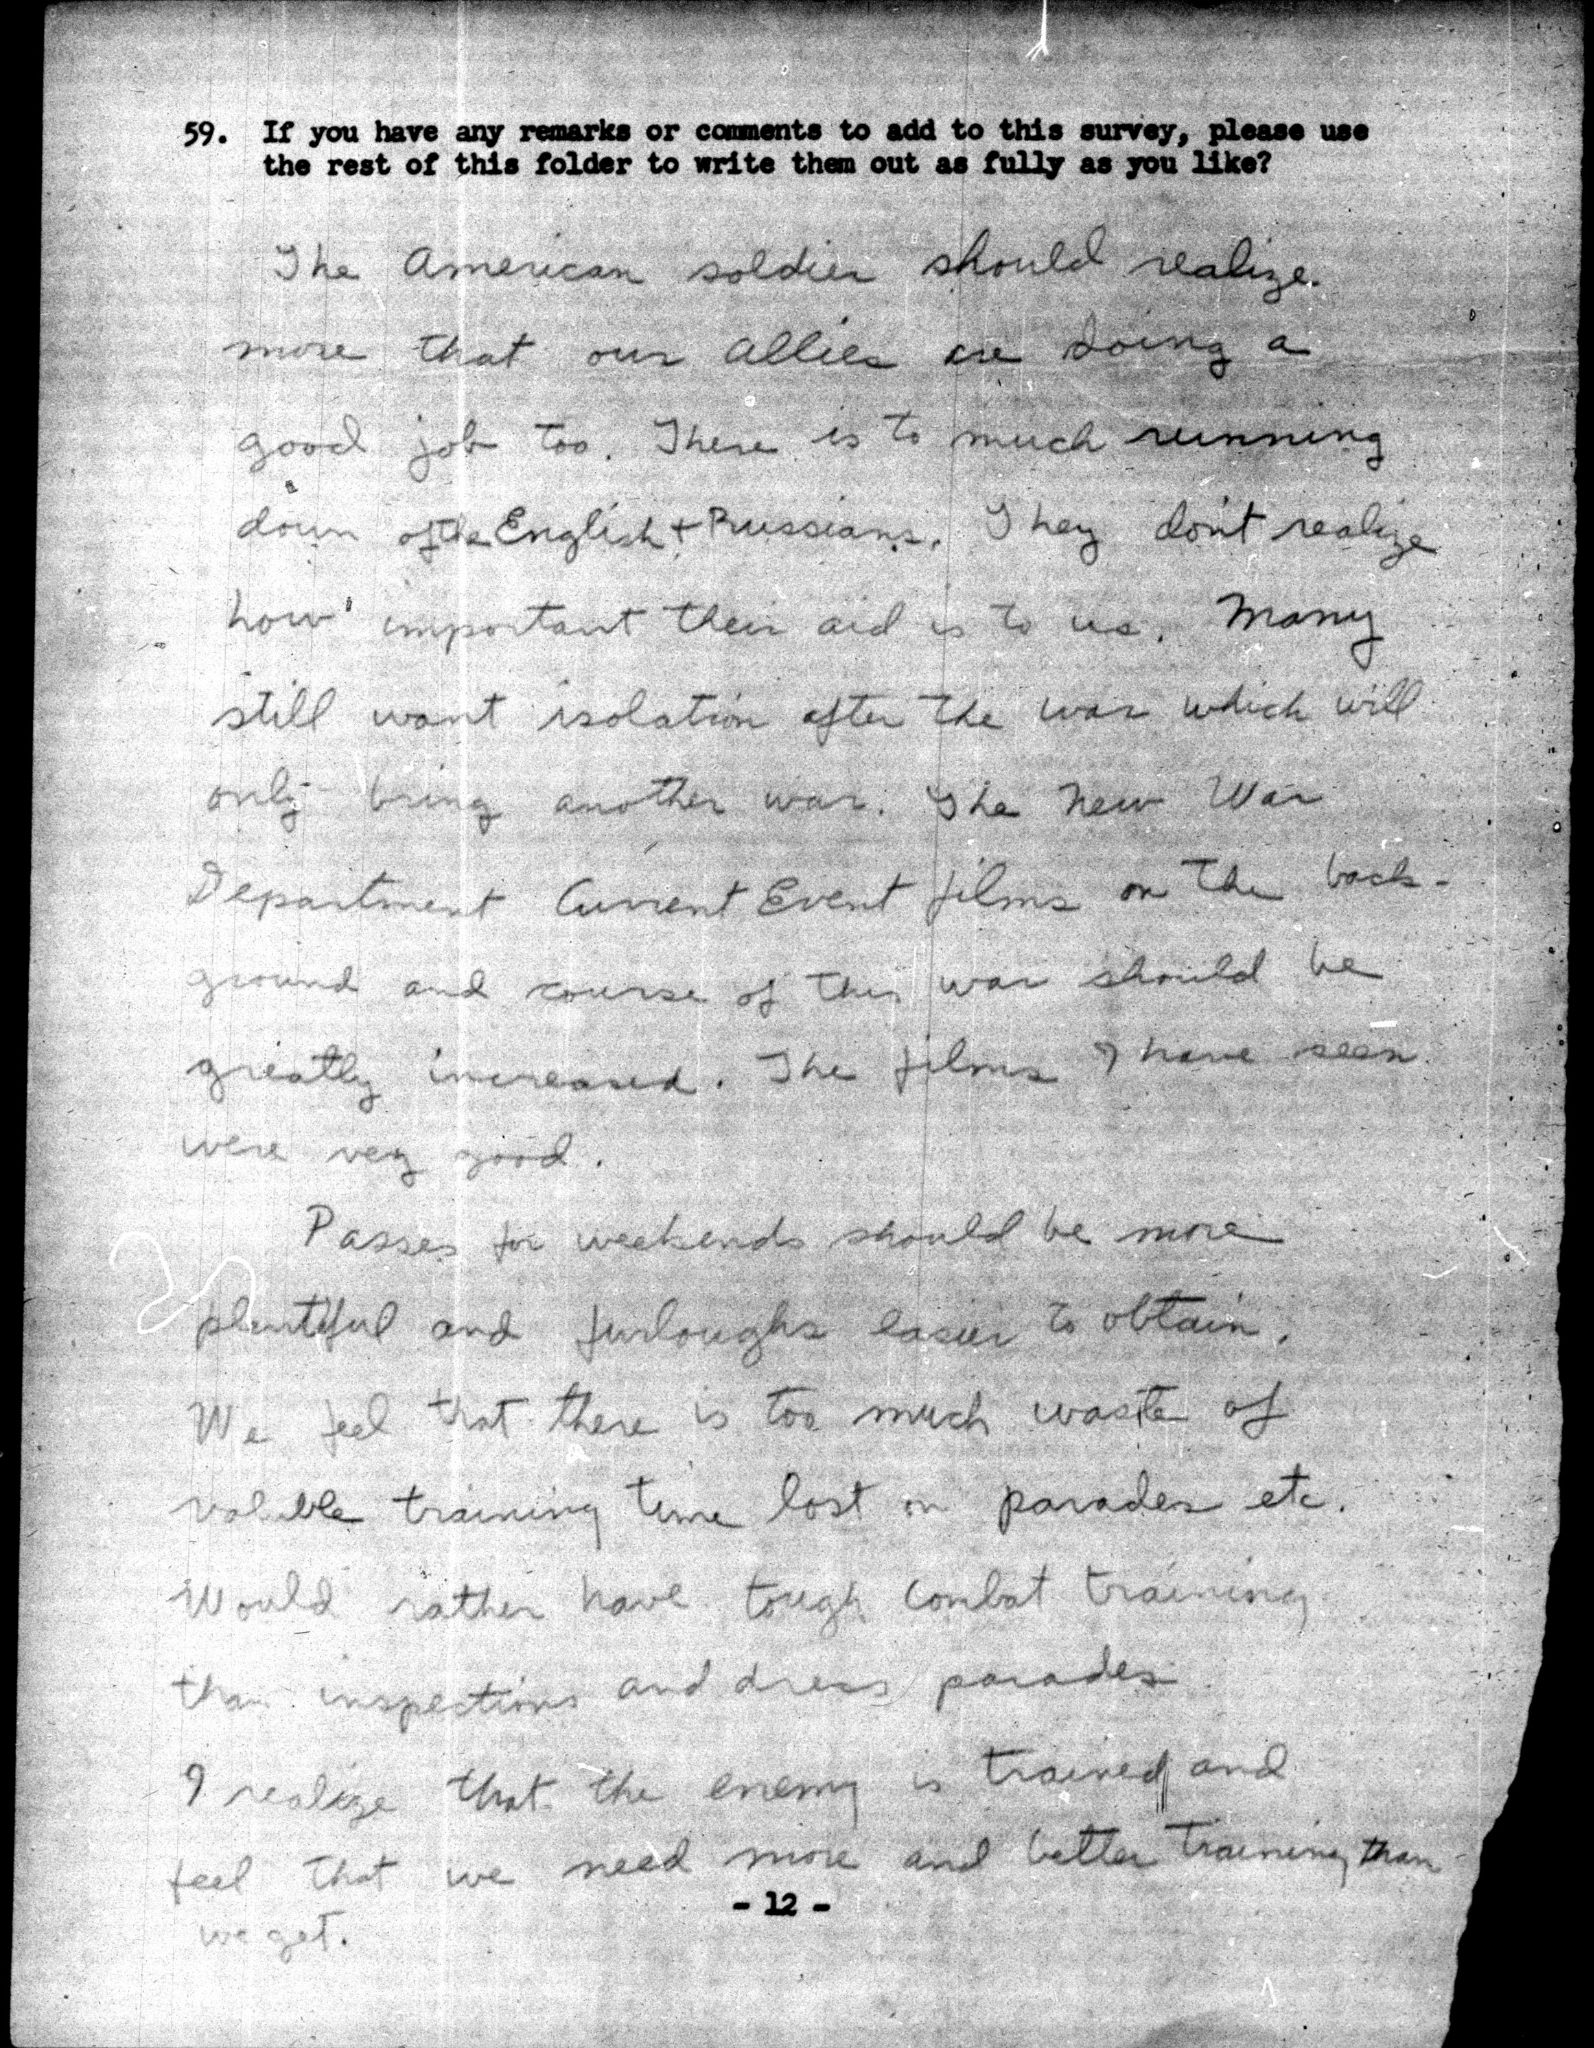 59. If you have any remarks or comments to add to this survey, please use
the rest of this folder to write them out as fully as you like?
The American soldier should realize
more that our allies are doing a
good job too. There is to much running
down of the English + Russians. They don't realize
how important their aid is to us. Many
still want isolation after the war which will
only bring another war. The New War
Department Current Event films on the back-
ground and course of this war should be
greatly increased. The films I have seen
were very good.
Passes for weekends should be more
plentiful and furloughs easier to obtain.
We feel that there is too much waste of
valuble training time lost on parades etc.
Would rather have tough combat training
than inspections and dress parades
I realize that the enemy is trained and
feel that we need more and better training than
- 12 -
we get.